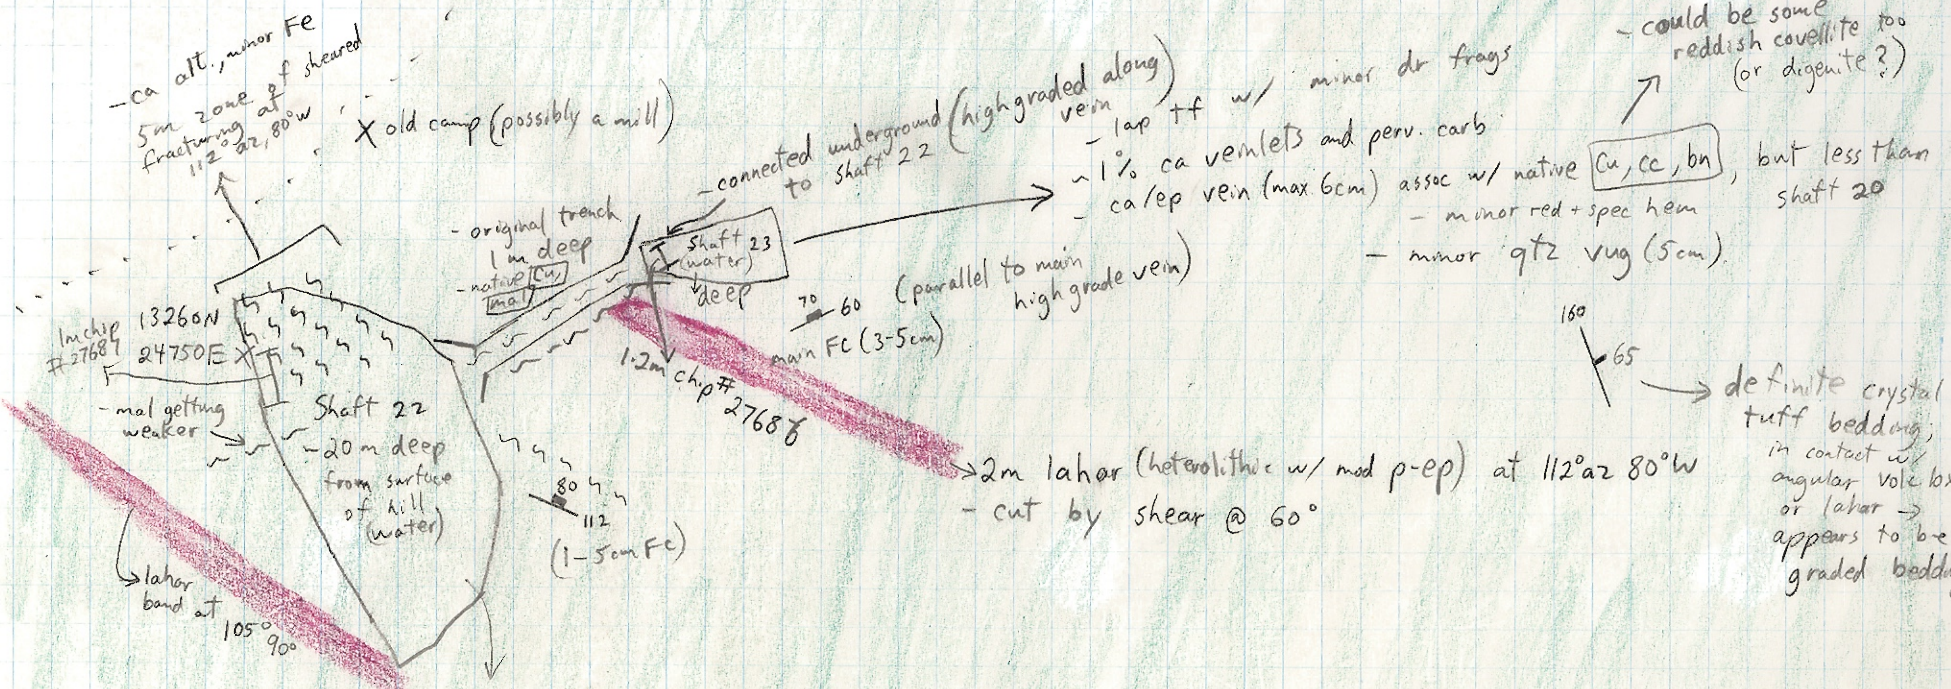 - ca alt., minor Fe
5m zone of sheared
fracturing at
112° az, 80°W
X old camp (possibly a mill)
- connected underground (high graded along
vein)
to shaft 22
- original trench
1m deep
- native Cu,
mal
Shaft 23
(water)
deep
- lap tf w/ minor dr frags
~ 1% ca veinlets and perv. carb
- ca/ep vein (max 6cm) assoc w/ native Cu, cc, bn, but less than
shaft 20
- minor red + spec hem
- minor qtz vug (5cm).
- could be some
reddish covellite too
(or digenite?)
70
60
(parallel to main
high grade vein)
main FC (3-5cm)
1.2m chip #
27686
1m chip
#27687
13260N
24750E X
- mal getting
weaker
Shaft 22
~20m deep
from surface
of hill
(water)
80
112
(1-5cm FC)
2m lahar (heterolithic w/ mod p-ep) at 112°az 80°W
- cut by shear @ 60°
lahar
band at
105°
90°
160
65
definite crystal
tuff bedding;
in contact w/
angular volc
or lahar →
appears to be
graded